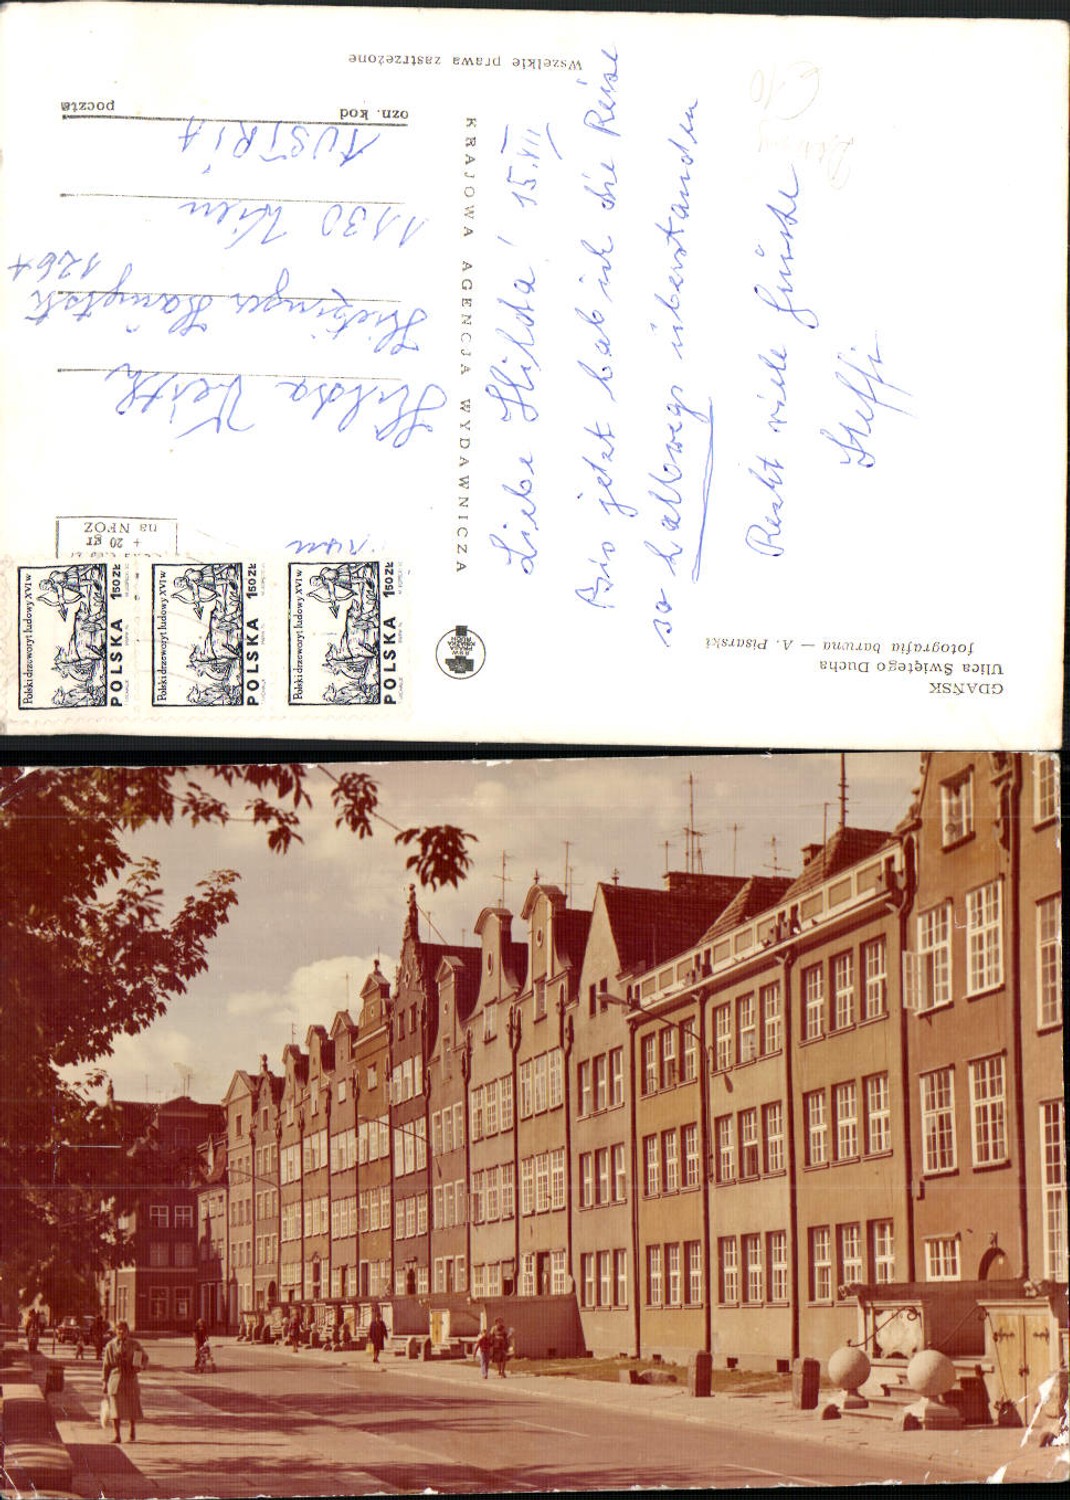 GDAŃSK
Ulica Świętego Ducha
fotografia barwna — A. Pisarski
Liebe Hilda! 15.VII
Bis jetzt hab ich die Reise
so halbwegs überstanden
Recht viele Grüsse
Steffi
KRAJOWA AGENCJA WYDAWNICZA
Wszelkie prawa zastrzeżone
+ 20 gr
na NFOZ
Polski drzeworyt ludowy XVI w
POLSKA 150 ZŁ
Polski drzeworyt ludowy XVI w
POLSKA 150 ZŁ
Polski drzeworyt ludowy XVI w
POLSKA 150 ZŁ
Hilda Veith
Hietzinger Hauptstr
126
1130 Wien
AUSTRIA
ozn. kod
poczta